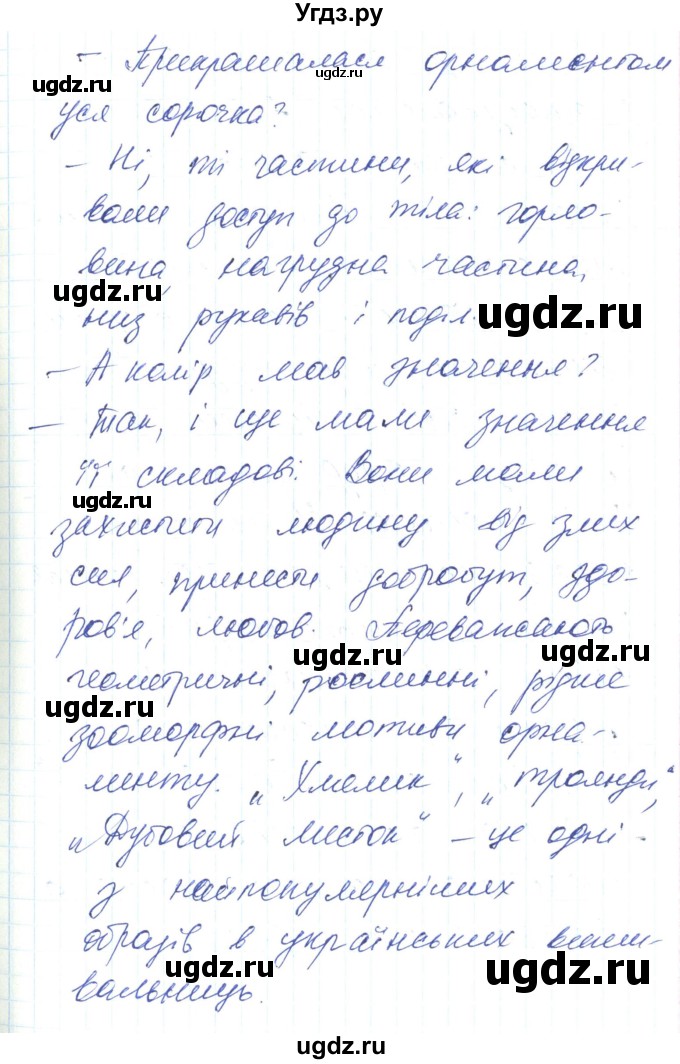 Угдз.ру
- Прикрашалася орнаментом
уся сорочка?
- Ні, ті частини, які відкри-
вали доступ до тіла: горло-
вина, нагрудна частина,
низ рукавів і поділ.
- А колір мав значення?
- Так, і ще мали значення
її складові. Вони мали
захистити людину від злих
сил, принести добробут, здо-
ров'я, любов. Переважають
геометричні, рослинні, рідше
зооморфні мотиви орна-
менту. „Хмелик", „троянди",
„Дубовий листок" - це одні
з найпопулярніших
образів в українських виши-
вальниць.
ugdz.ru
ugdz.ru
ugdz.ru
ugdz.ru
ugdz.ru
ugdz.ru
ugdz.ru
ugdz.ru
ugdz.ru
ugdz.ru
ugdz.ru